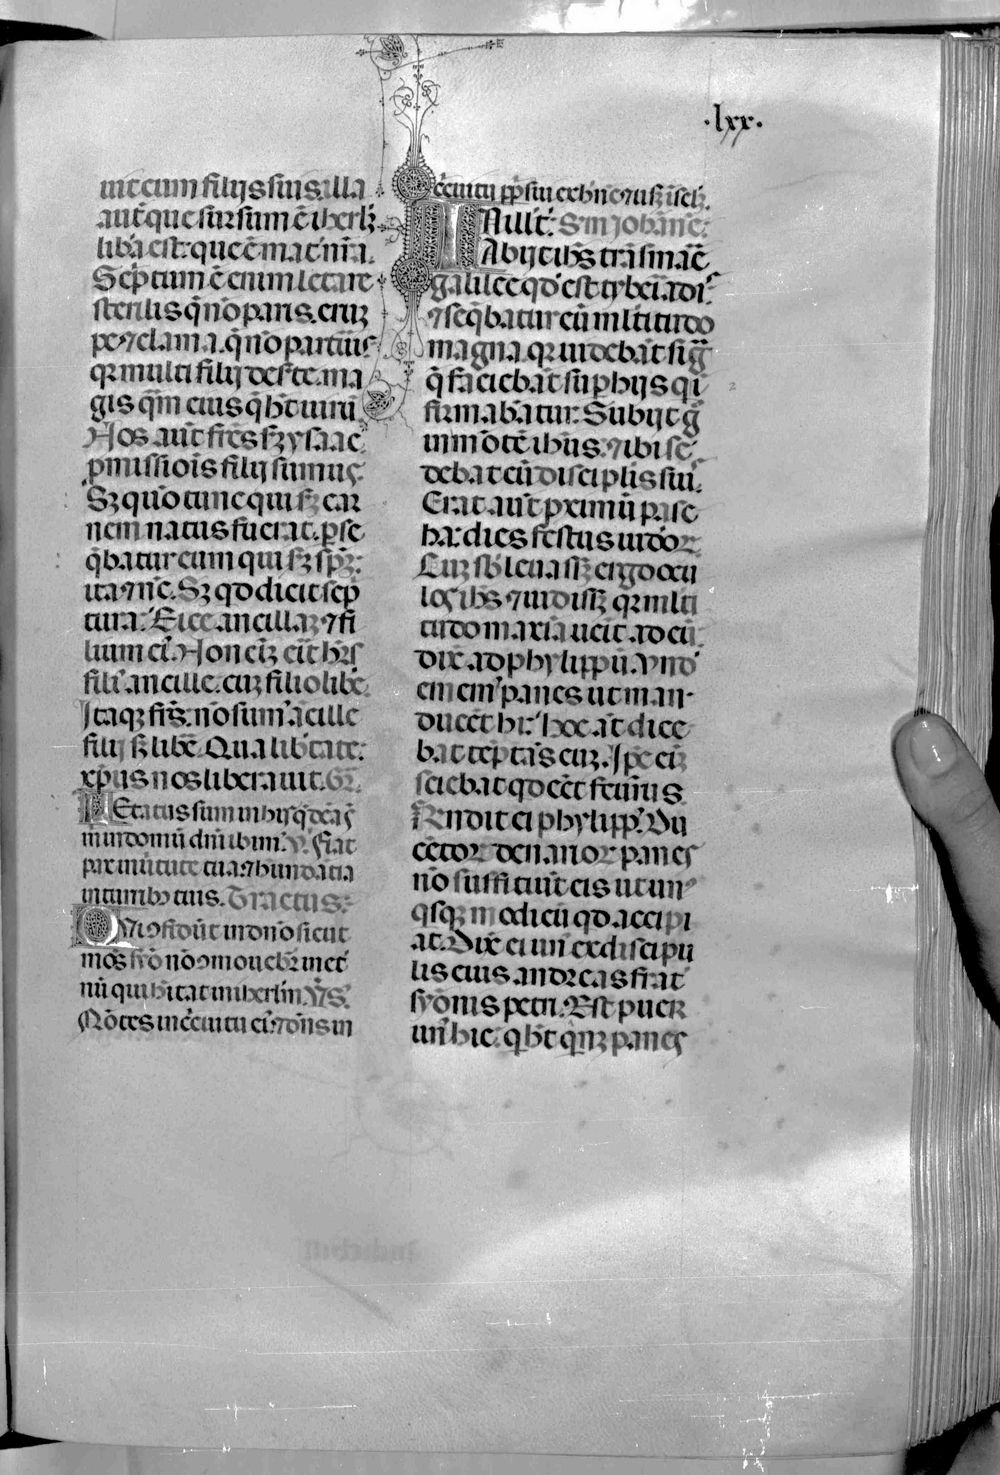 ·lxx·
uit cum filijs suis. illa
aut̄ que sursum ē iherl̄z
lib̄a est: que ē mat̄ nr̄a.
Scp̄tum ē enim letare
sterilis q̄ nō paris. erūz
pe ⁊ clama. q̄ nō parturis
qz multi filij deserte. ma
gis q̄m eius q̄ hēt uirū.
Nos aut̄ fr̄es sz ysaac
pmissiōis filij sumus.
Sz quō tunc qui sz car
nem natus fuerat. pse
q̄batur eum qui sz sp̄z:
ita ⁊ nc̄. Sz qd̄ dicit scp̄
tura: Eice ancillaz ⁊ fi
lium ei'. Non eiz erit hēs
fili' ancille. cuz filio libē.
Itaqz frs̄. nō sum' ācille
filij sz libē. Qua libtate:
xp̄us nos liberauit. Gr̄.
Letatus sum in his q̄ dcā s̄
m̄ in domū dn̄i ibim'. V̄. Fiat
pax in ūtute tua: ⁊ hūndātia
in turribȝ tuis. Tractus.
Qui ↄfidūt in dn̄o sicut
mōs syō nō ↄmouebr̄ in et̄
nū qui hitat in iherl̄m. V̄s.
Mōtes in c̄cuitu ei': ⁊ dn̄s in
c̄cuitu pp̄li sui ex hn̄c ⁊ usqz ī sclz.
Illo t̄. Sm̄ Johānē:
Abijt ihs̄ trās mac̄
galilee qd̄ est tyberiadis
⁊ seq̄batur eū mltitudo
magna. qz uidebāt siḡ
q̄ faciebāt sup hijs qi
firmabātur. Subijt ḡ
in mōtē ihūs. ⁊ ibi se
debat cū discipl̄is sui.
Erat aut̄ pximū pasc
ha: dies festus iudeoꝝ
Cuz sb̄leuasz ergo ocu
los ihs̄ ⁊ uidissz qz mlti
tudo maxīa uēit ad eū:
dix̄ ad phylippū. Vnd'
emem' panes ut man
ducēt hi: hoc āt dice
bat tēptās euz. Ipē eīz
sciebat qd̄ eēt fcūrus
Rn̄dit ei phylipp'. Du
cētoꝝ denarioꝝ panes
nō suffitiūt eis ut un'
qsqz modicū qd̄ accipi
at. Dix̄ ei un' ex discipu
lis eius. andreas frat̄
syōnis petri. Est puer
un' hic. q̄ hēt q̄nqz panes